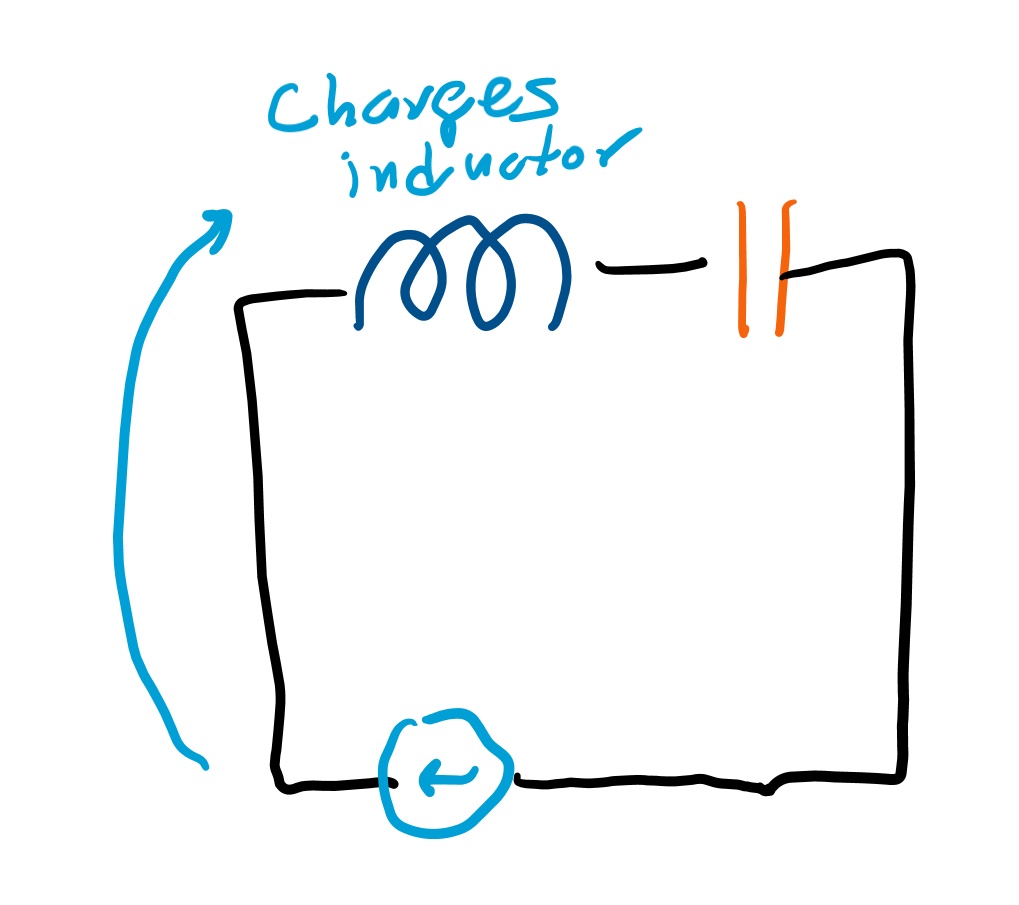 Charges
inductor